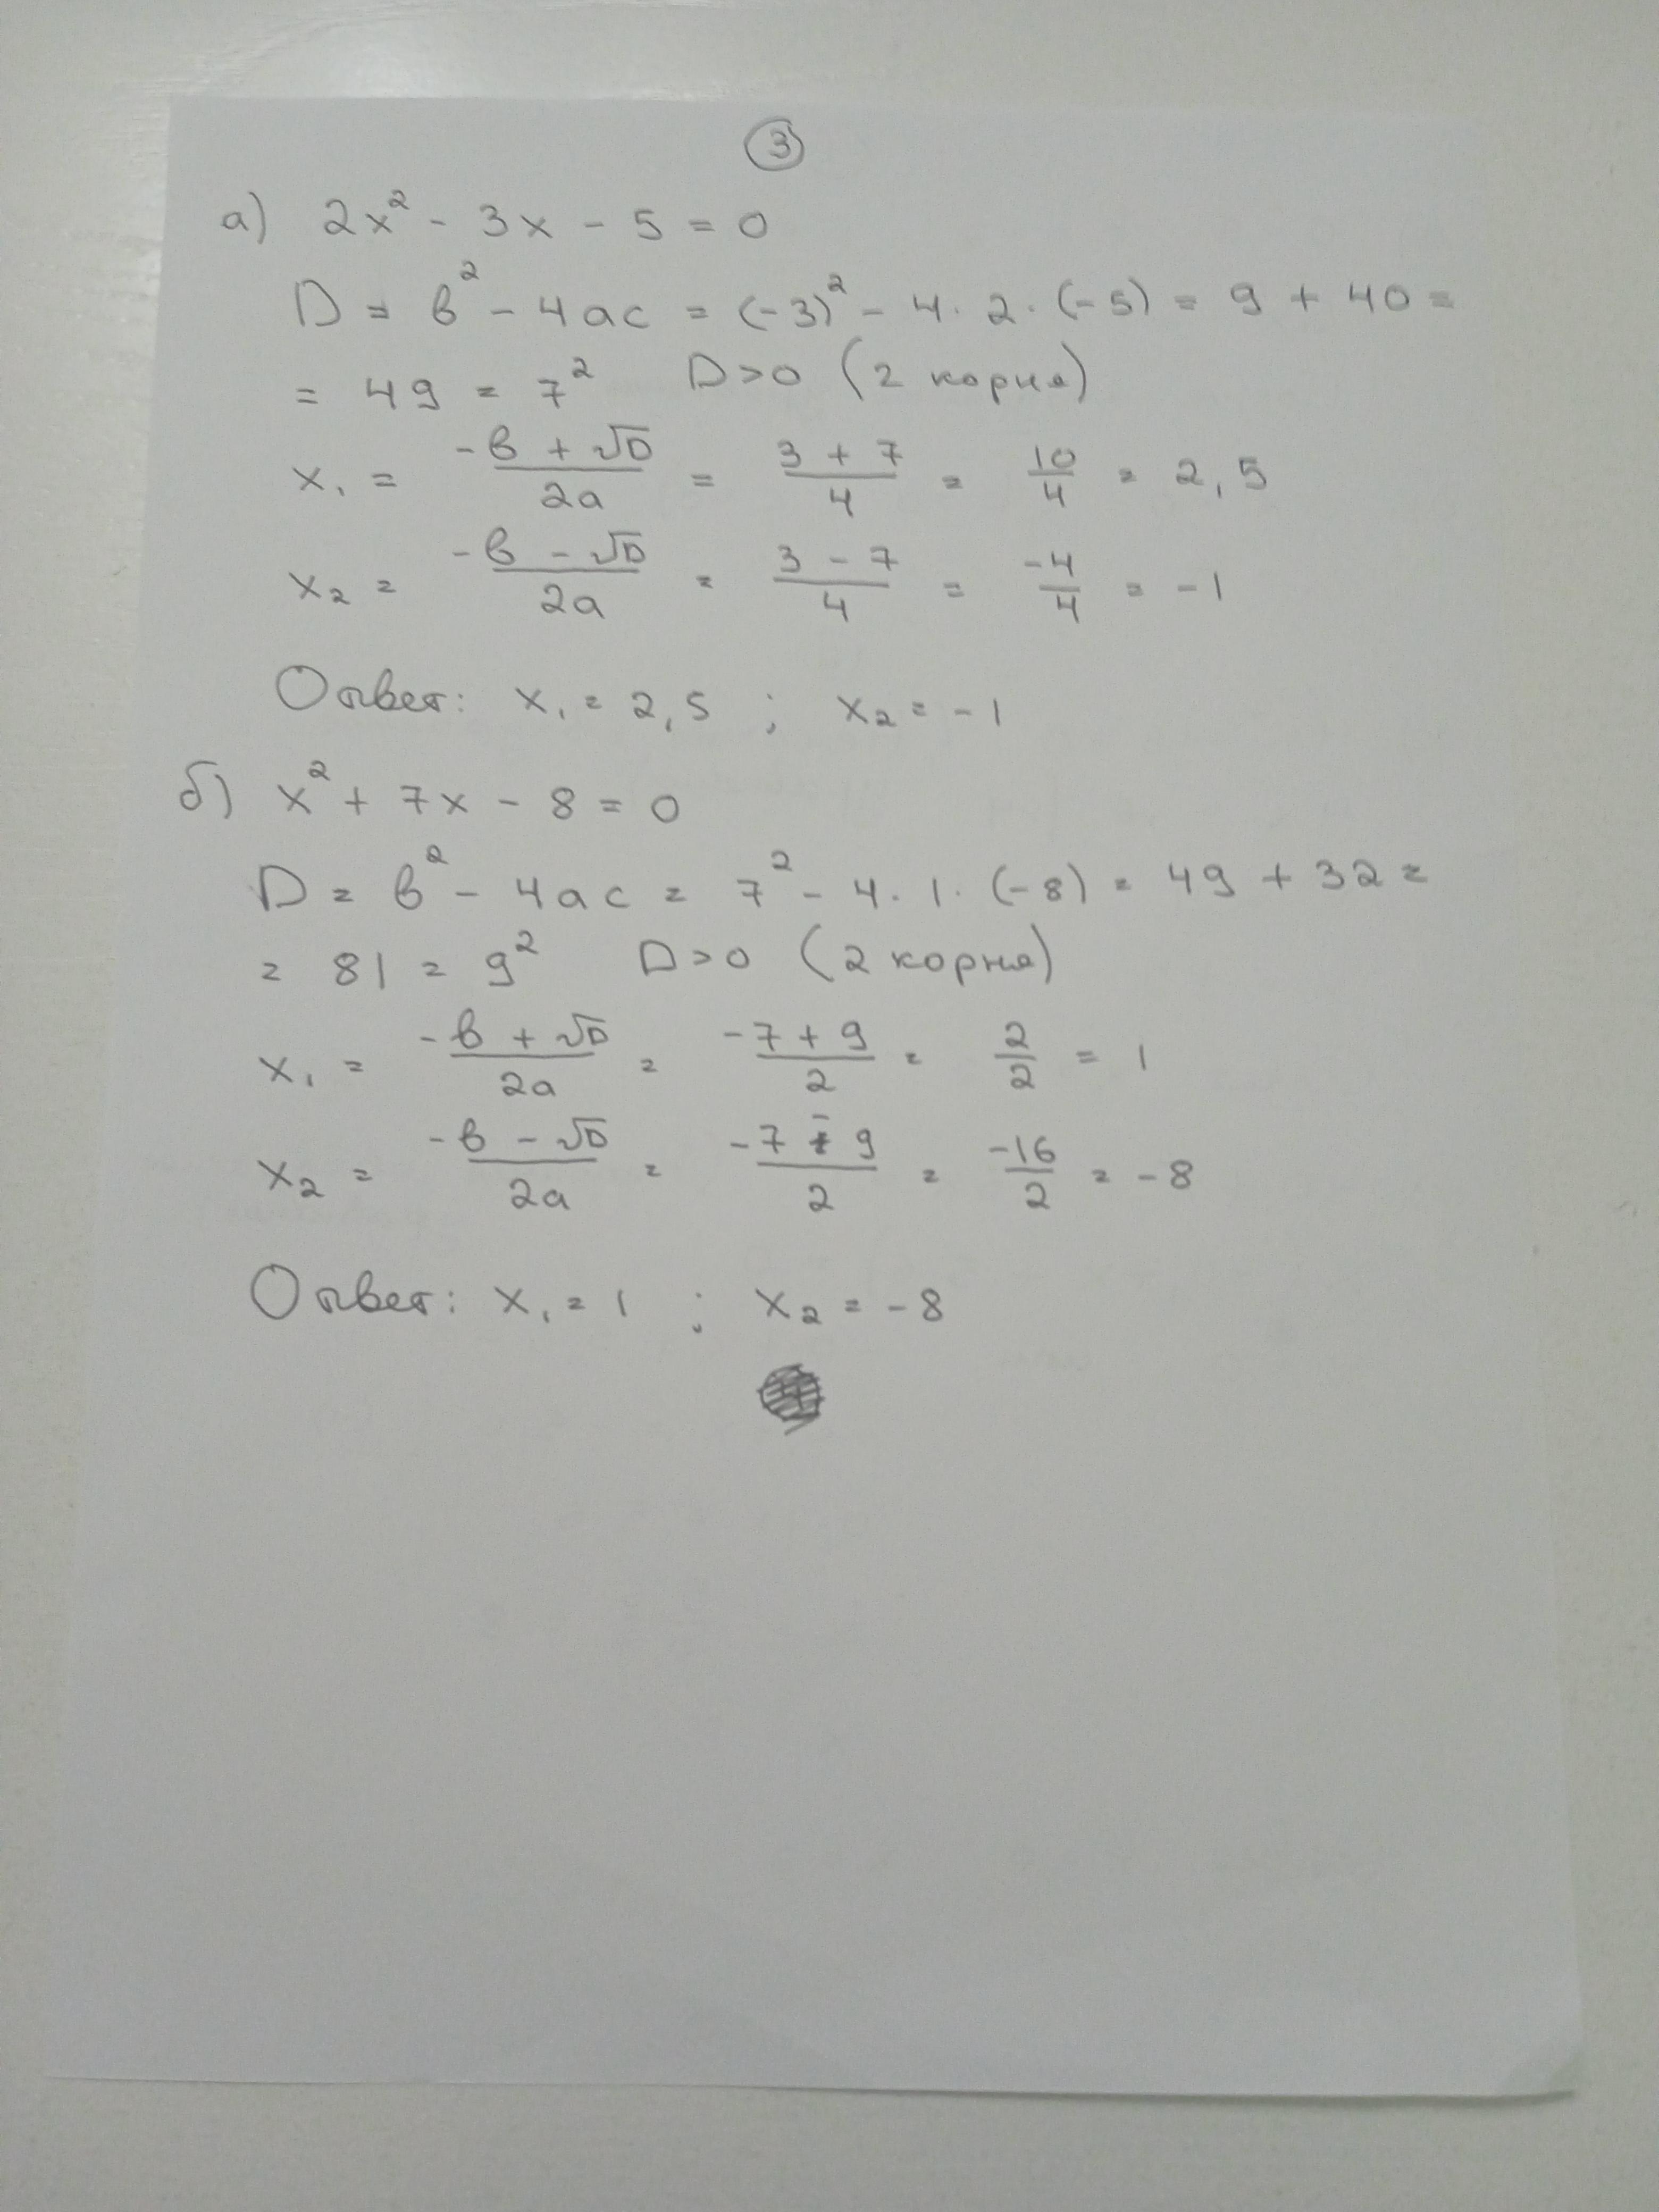 3
а) 2x² - 3x - 5 = 0
D = в² - 4ac = (-3)² - 4 · 2 · (-5) = 9 + 40 =
= 49 = 7² D>0 (2 корня)
x₁ = (-в + √D)/2a = (3 + 7)/4 = 10/4 = 2,5
x₂ = (-в - √D)/2a = (3 - 7)/4 = -4/4 = -1
Ответ: x₁ = 2,5 ; x₂ = -1
б) x² + 7x - 8 = 0
D = в² - 4ac = 7² - 4 · 1 · (-8) = 49 + 32 =
= 81 = 9² D>0 (2 корня)
x₁ = (-в + √D)/2a = (-7 + 9)/2 = 2/2 = 1
x₂ = (-в - √D)/2a = (-7 - 9)/2 = -16/2 = -8
Ответ: x₁ = 1 ; x₂ = -8